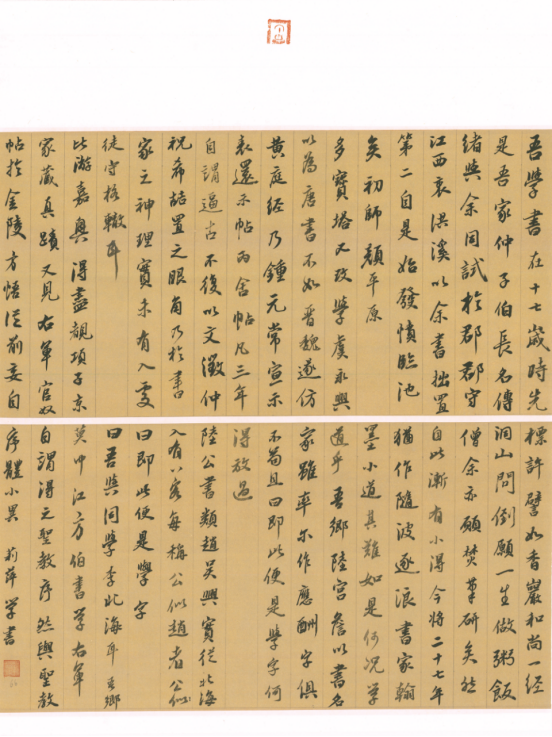 吾學書在十七歲時先
是吾家仲子伯長名傳
緒與余同試於郡郡守
江西衷洪溪以余書拙置
第二自是始發憤臨池
矣初師顏平原
多寶塔又改學虞永興
以為唐書不如晉魏遂仿
黃庭經乃鍾元常宣示
表還示帖丙舍帖凡三年
自謂逼古不復以文徵仲
祝希喆置之眼角乃於書
家之神理實未有入處
徒守格轍耳
比游嘉興得盡覩項子京
家藏真蹟又見右軍官奴
帖於金陵方悟從前妄自
標許譬如香巖和尚一經
洞山問倒願一生做粥飯
僧余亦願焚筆研矣然
自此漸有小得今將二十七年
猶作隨波逐浪書家翰
墨小道其難如是何況學
道乎吾鄉陸宮詹以書名
家雖率尔作應酬字俱
不苟且曰即此便是學字何
得放過
陸公書類趙吳興實從北海
入有客每稱公似趙者公似
曰即此便是學字
曰吾與同學李北海耳吾鄉
莫中江方伯書學右軍
自謂得之聖教序然與聖教
序體小異 莉萍學書